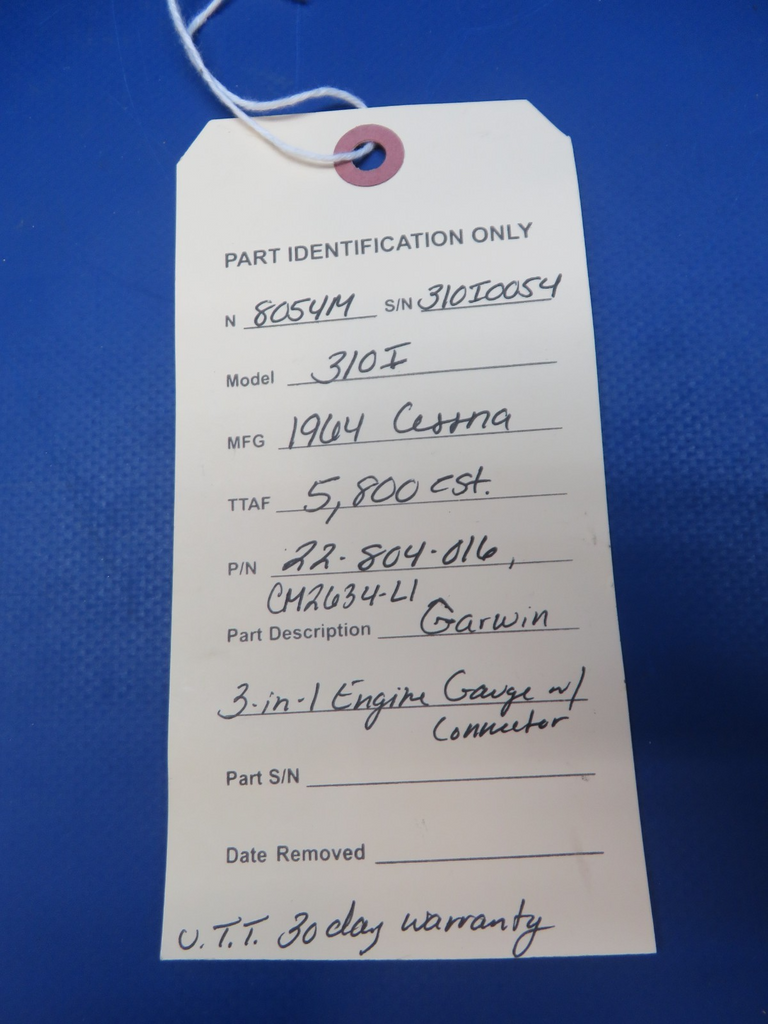 PART IDENTIFICATION ONLY
N 8054M S/N 310I0054
Model 310I
MFG 1964 Cessna
TTAF 5,800 est.
P/N 22-804-016,
CM2634-L1
Part Description Garwin
3-in-1 Engine Gauge w/
Connector
Part S/N
Date Removed
U.T.T. 30 day warranty